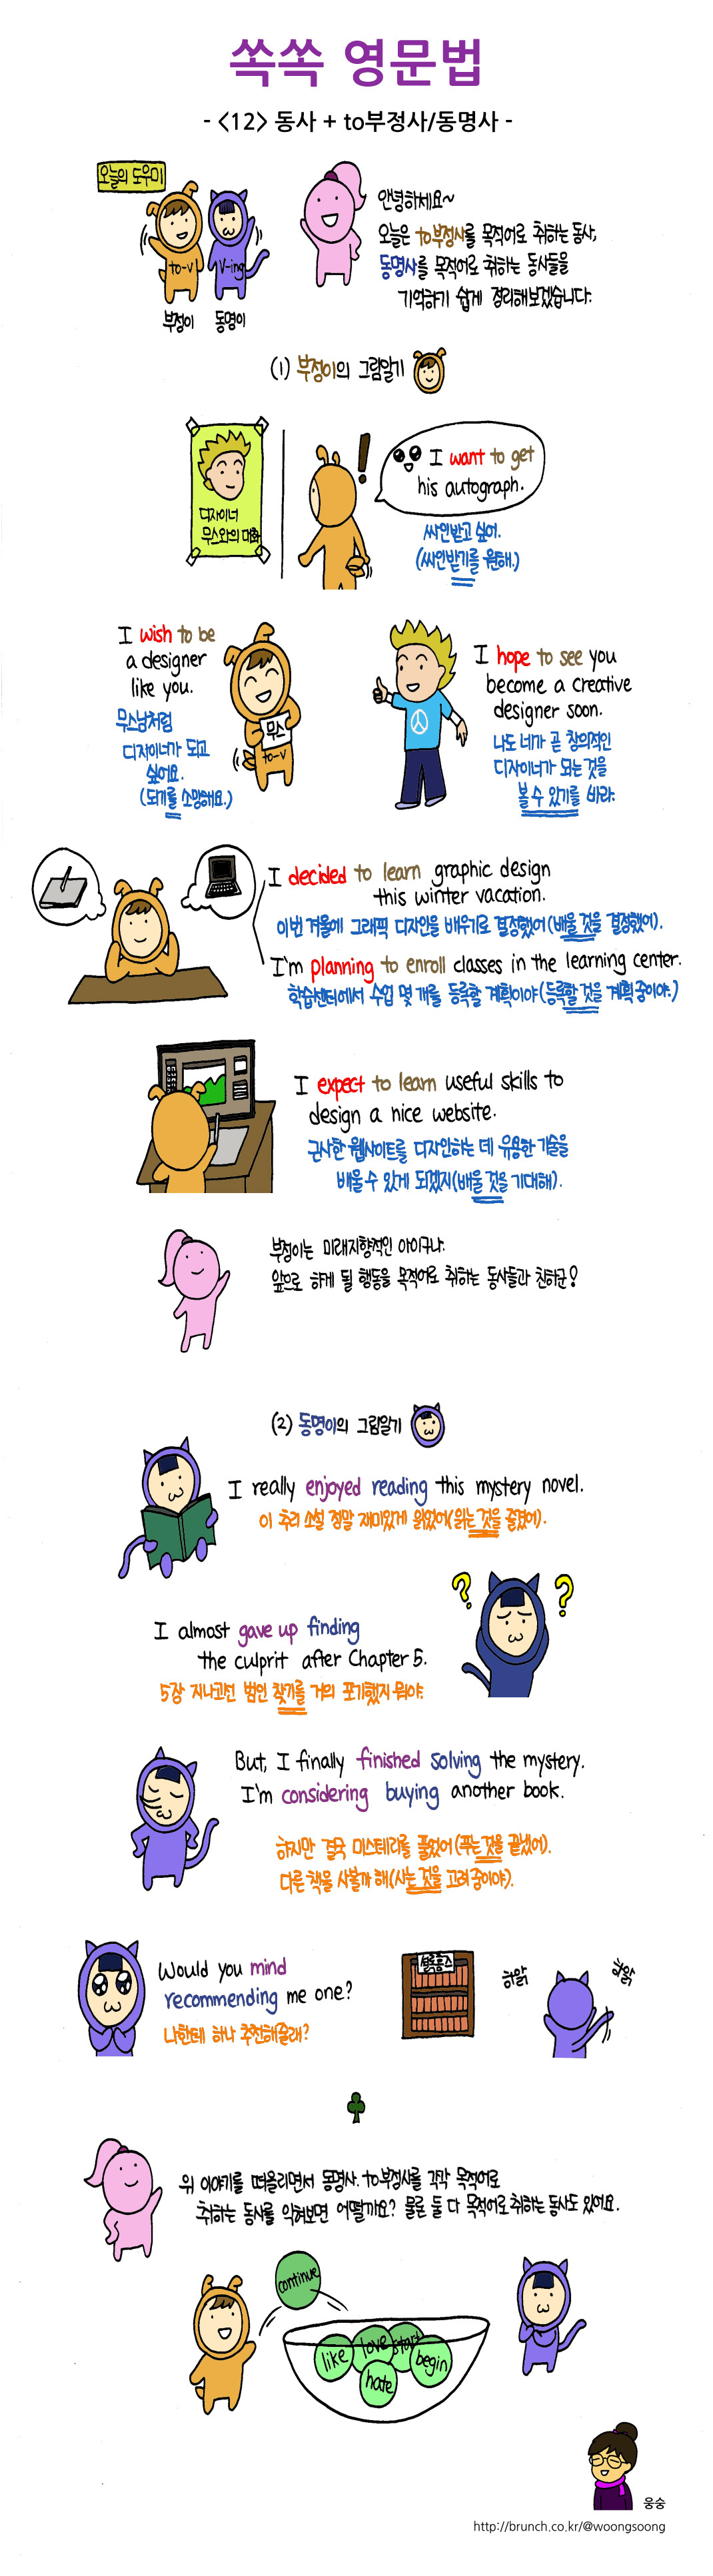 쏙쏙 영문법
- <12> 동사 + to부정사/동명사 -
오늘의 도우미
to-v
V-ing
부정이
동명이
안녕하세요~
오늘은 to부정사를 목적어로 취하는 동사,
동명사를 목적어로 취하는 동사들을
기억하기 쉽게 정리해보겠습니다.
(1) 부정이의 그림일기
디자이너
무스와의 대화
!
I want to get
his autograph.
싸인받고 싶어.
(싸인받기를 원해.)
I wish to be
a designer
like you.
무스님처럼
디자이너가 되고
싶어요.
(되기를 소망해요.)
무스
to-v
I hope to see you
become a creative
designer soon.
나도 네가 곧 창의적인
디자이너가 되는 것을
볼 수 있기를 바라.
I decided to learn graphic design
this winter vacation.
이번 겨울에 그래픽 디자인을 배우기로 결정했어(배울 것을 결정했어).
I'm planning to enroll classes in the learning center.
학습센터에서 수업 몇 개를 등록할 계획이야(등록할 것을 계획 중이야.)
I expect to learn useful skills to
design a nice website.
근사한 웹사이트를 디자인하는 데 유용한 기술을
배울 수 있게 되겠지(배울 것을 기대해).
부정이는 미래지향적인 아이구나.
앞으로 하게 될 행동을 목적어로 취하는 동사들과 친하군!
(2) 동명이의 그림일기
I really enjoyed reading this mystery novel.
이 추리 소설 정말 재미있게 읽었어(읽는 것을 즐겼어).
I almost gave up finding
the culprit after Chapter 5.
5장 지나고선 범인 찾기를 거의 포기했지 뭐야.
? ?
But, I finally finished solving the mystery.
I'm considering buying another book.
하지만 결국 미스테리를 풀었어(푸는 것을 끝냈어).
다른 책을 사볼까 해(사는 것을 고려 중이야).
Would you mind
recommending me one?
나한테 하나 추천해줄래?
셜록홈즈
하앍
하앍
위 이야기를 떠올리면서 동명사, to부정사를 각각 목적어로
취하는 동사를 익혀보면 어떨까요? 물론 둘 다 목적어로 취하는 동사도 있어요.
continue
like
love
start
hate
begin
웅숭
http://brunch.co.kr/@woongsoong